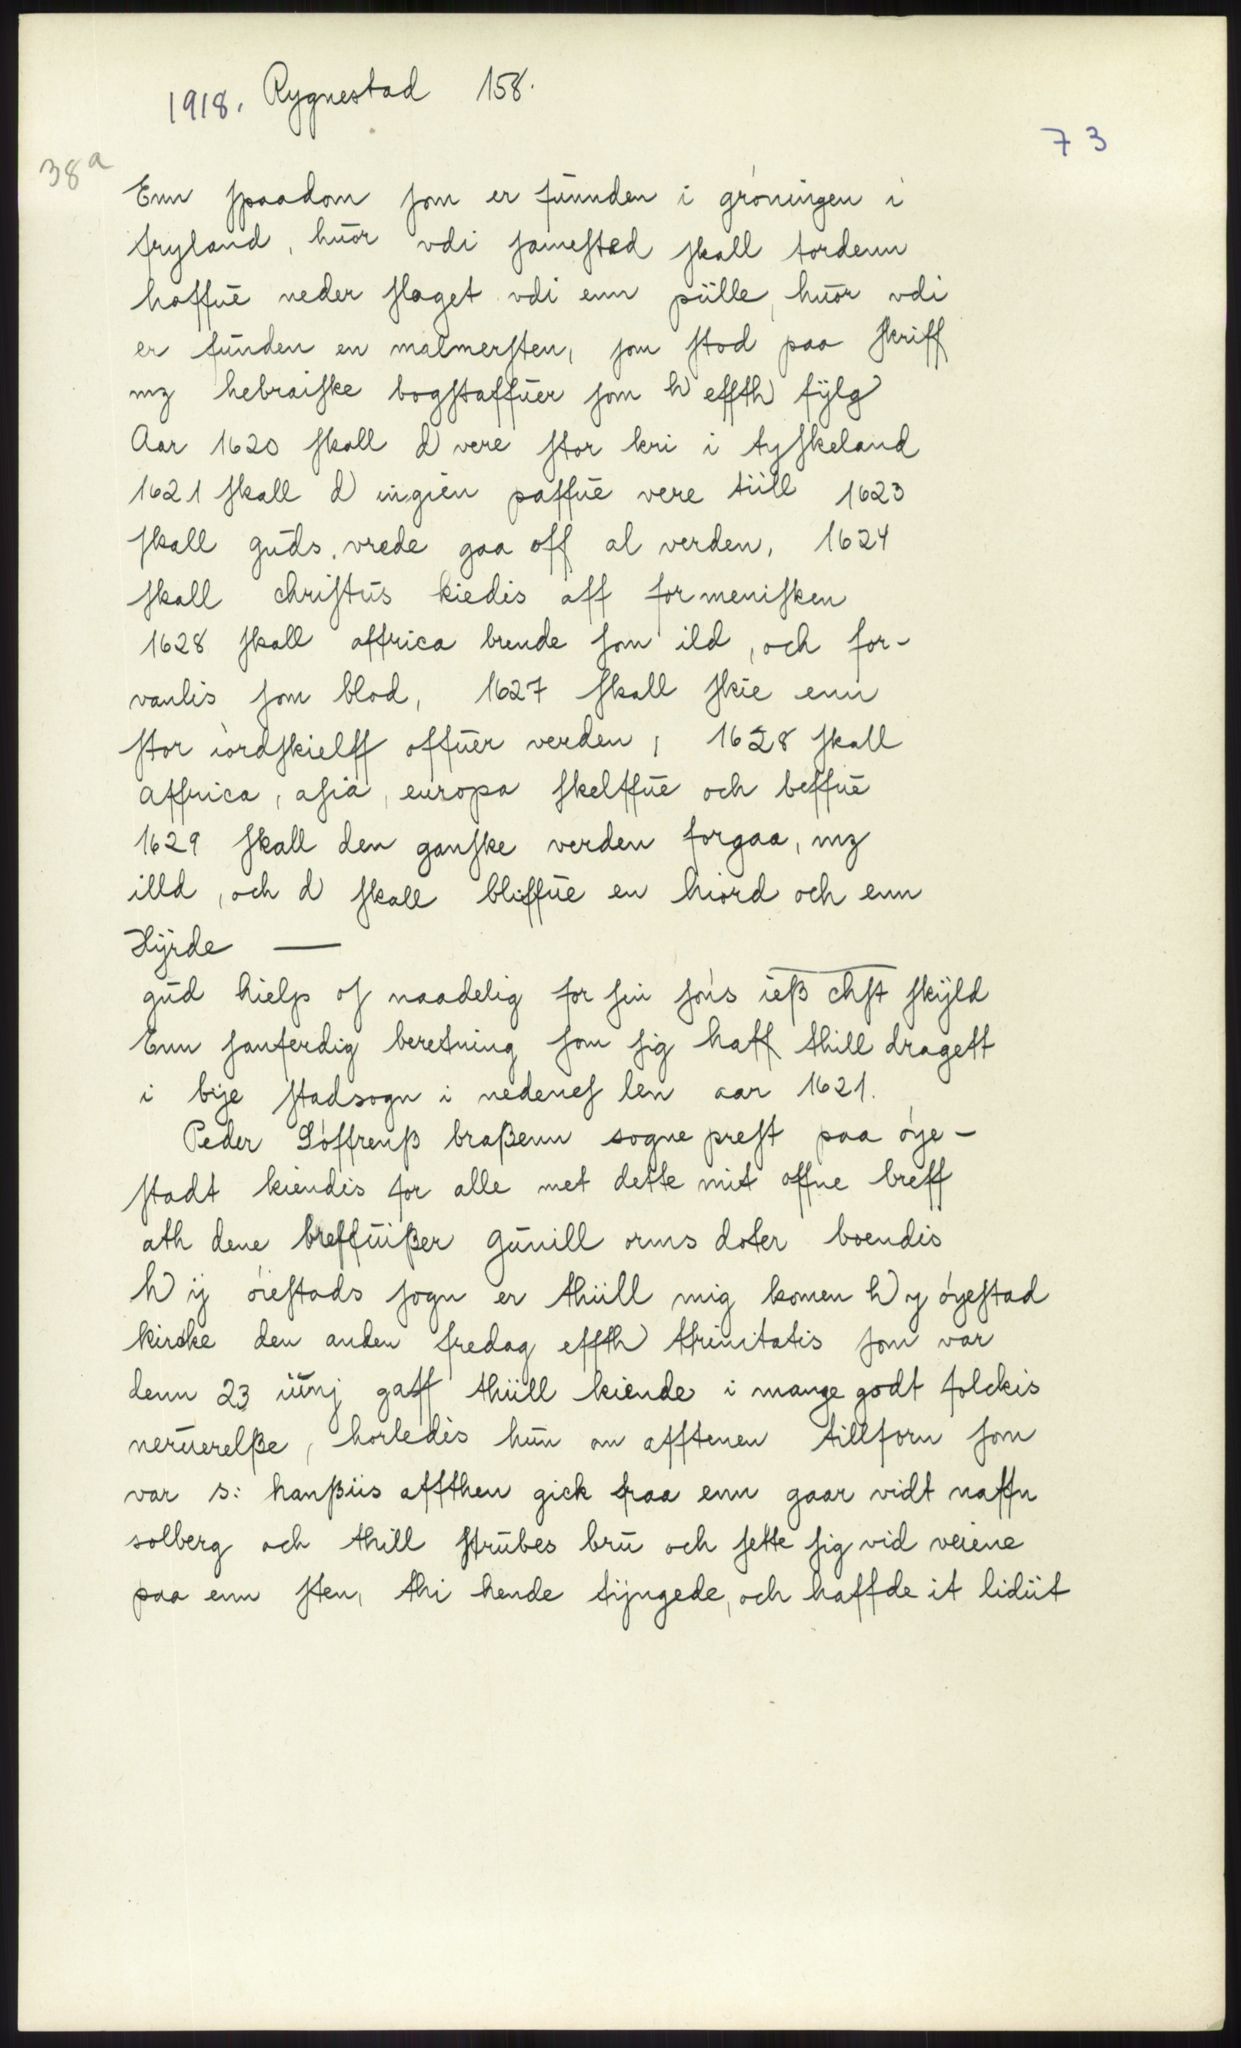 1918. Rygnestad 158.
73
38a
Enn ſpaadom ſom er fŭnnden i gróningen i
fryland, hŭor vdi ſameſted ſkall tordenn
haffŭe neder ſlaget vdi enn pülle, hŭor vdi
er fŭnden en malmerſten, ſom ſtod paa ſkriff
mz hebraiſke bogſtaffŭer ſom h effth fÿlg
Aar 1620 ſkall d vere ſtor kri i tyſkeland
1621 ſkall d ingien paffŭe vere tüll 1623
ſkall gŭds vrede gaa off al verden, 1624
ſkall chriſtŭs kiedis aff for meniſken
1628 ſkall affrica brende ſom ild, och for-
vanlis ſom blod, 1627 ſkall ſkie enn
ſtor iordſkielff offŭer verden, 1628 ſkall
affrica, aſia, europa ſkelffŭe och beffŭe
1629 ſkall den ganſke verden forgaa, mz
illd, och d ſkall bliffŭe en hiord och enn
Hÿrde —
gŭd hielp oſ naadelig for ſin ſóns ieß chſt ſkÿld
Enn ſanferdig beretning ſom ſig haff thill dragett
i bÿe ſtadsogn i nedeneſ len aar 1621.
Peder Sóffrenß braßenn sogne preſt paa óye-
ſtadt kiendis for alle met dette mit offne breff
ath dene breffŭißer gŭnill orms doter boendis
h ij óieſtads ſogn er thüll mig komen h y óyeſtad
kircke den anden fredag effth thrinitatis ſom var
denn 23 iŭnj gaff thüll kiende i mange godt folckis
nerŭerelße, horledis hŭn om afftenen tillforn ſom
var s: hanßüs affthen gick fraa enn gaar vidt naffn
solberg och thill ſtrŭbes brŭ och ſette ſig vid veiene
paa enn ſten, thi hende tÿngede, och haffde it lidüt